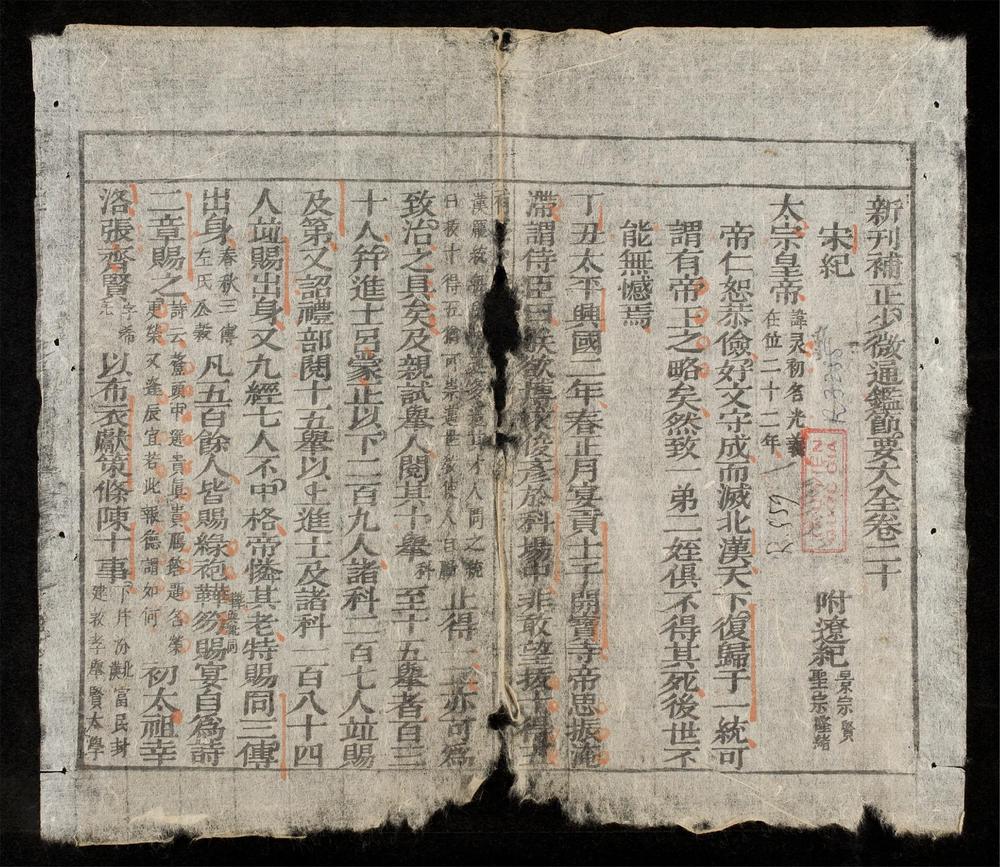 新刊補正少微通鑑節要大全卷二十
宋紀 附遼紀 景宗賢 聖宗隆緒
太宗皇帝 諱炅初名光義在位二十二年
帝仁恕恭儉好文守成而滅北漢天下復歸于一統可
謂有帝王之略矣然致一弟二姪俱不得其死後世不
能無憾焉
丁丑太平興國二年春正月宴貢士于開寶寺帝思振淹
滯謂侍臣曰朕欲博求俊彥於科場中非敢望拔十得五
止得一二亦可爲
致治之具矣及親試舉人閱其十舉 科 至十五舉者百三
十人幷進士呂蒙正以下二百九人諸科二百七人竝賜
及第又詔禮部閱十五舉以上進士及諸科一百八十四
人竝賜出身又九經七人不中格帝憐其老特賜同三傳
出身 春秋三傳左氏公穀 凡五百餘人皆賜綠袍鞾笏賜宴自爲詩
二章賜之 詩云 初太祖幸
洛張齊賢 字 以布衣獻策條陳十事 下幷汾 富民封建敦孝舉賢太學
R3333
R559